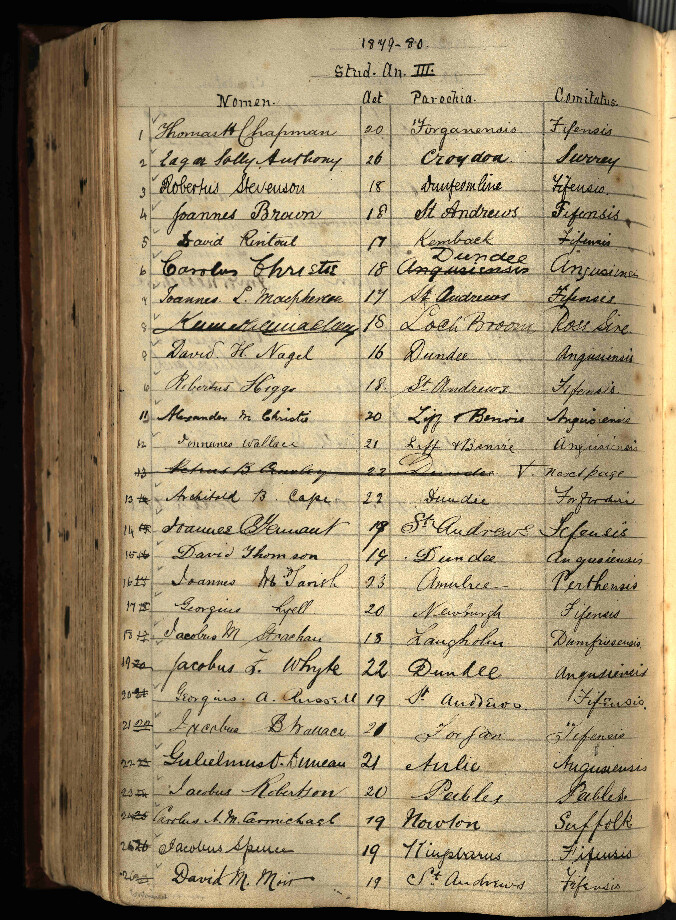 1879-80.
Stud. An. III.
Nomen. Aet Parochia. Comitatus.
1 Thomas H Chapman 20 Forganensis Fifensis
2 Edgar Solly Anthony 26 Croydon. Surrey
3 Robertus Stevenson 18 Dunfermline Fifensis
4 Joannes Brown 18 St Andrews Fifensis
5 David Rintoul 17 Kemback Fifensis
Dundee
6 Carolus Christie 18 Angusiensis Angusiensis
7 Joannes L. Macpherson 17 St Andrews Fifensis
8 18 Loch Broom Ross Sire
9 David H. Nagel 16 Dundee Angusiensis
Robertus Higgs 18. St Andrews Fifensis
11 Alexander M Christie 20 Liff & Benvie Angusiensis
12 Joannes Wallace 21 Liff & Benvie Angusiensis
13 Petrus B 22 Dundee V. next page
13 14 Archibald B. Cape 22 Dundee
14 15 Joannes B Tennant 19 St Andrews Fifensis
15 16 David Thomson 19 Dundee Angusiensis
16 17 Joannes McTavish 23 Amulree Perthensis
17 18 Georgius Lyell 20 Newburgh Fifensis
18 19 Jacobus M. Strachan 18 Langholm Dumfriesensis
19 20 Jacobus F. Whyte 22 Dundee Angusiensis
20 21 Georgius. A. Russell 19 St Andrews Fifensis.
21 22 Jacobus B Wallace 21 Forgan Fifensis
22 Gulielmus D. Duncan 21 Airlie Angusiensis
23 Jacobus Robertson 20 Peebles Peebles.
24 25 Carolus A. M. Carmichael 19 Nowton Suffolk
26 Jacobus Spence 19 Kingsbarns Fifensis
David M. Moir 19 St Andrews Fifensis